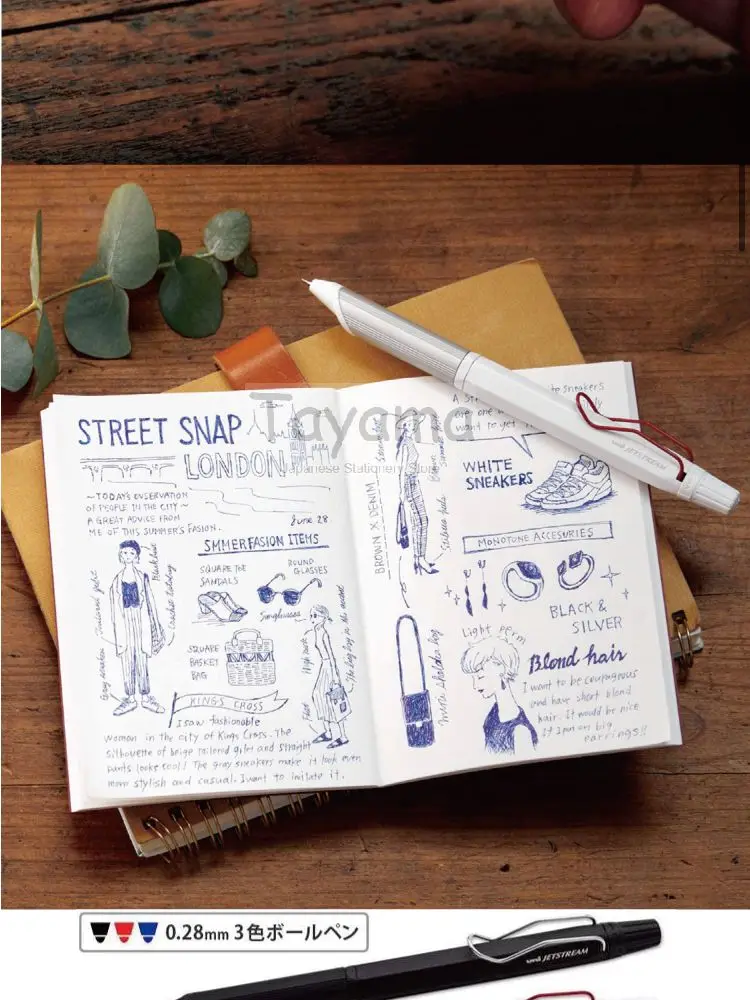 STREET SNAP
LONDON
Tayama
Japanese Stationery Store
~TODAY'S ONSERVATION
OF PEOPLE IN THE CITY~
A GREAT ADVICE FROM
ME OF THIS SUMMER'S FASION.
June 28
SMMERFASION ITEMS
SQUARE TOE
SANDALS
ROUND
GLASSES
Sunglasses
SQUARE
BASKEY
BAG
KINGS CROSS
I saw fashionable
women in the city of Kings Cross. The
silhouette of beige tailored gilet and straight
pants looke cool! The gray sneakers make it look even
more stylish and casual. I want to imitate it.
BROWN X DENIM
mini shoulder bag
want to get
WHITE
SNEAKERS
MONOTONE ACCESURIES
BLACK &
SILVER
Light perm
Blond hair
I want to be courageous
and have short blond
hair. It would be nice
if I put on big
earrings!!
uni JETSTREAM
0.28mm 3色ボールペン
uni JETSTREAM